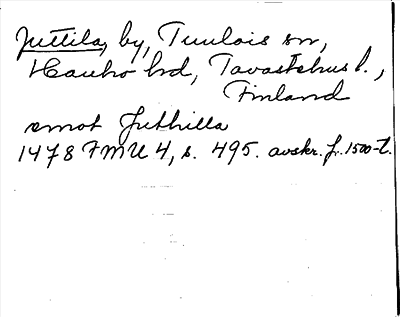 Juttila, by, Tuulois sn,
Hauho hd, Tavastehus l.,
Finland
emot Juthilla
1478 FMU 4, s. 495. avskr. fr. 1500-t.